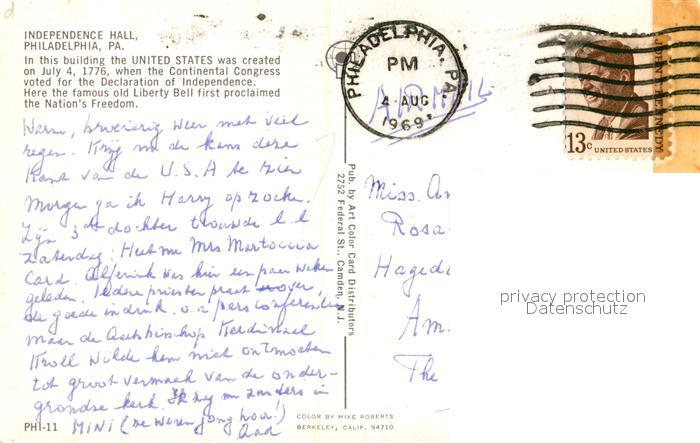 INDEPENDENCE HALL,
PHILADELPHIA, PA.
In this building the UNITED STATES was created
on July 4, 1776, when the Continental Congress
voted for the Declaration of Independence.
Here the famous old Liberty Bell first proclaimed
the Nation's Freedom.
Warm, broeierig weer met veel
regen. Krijg nu de kans deze
kant van de U.S.A te zien
Morgen ga ik Harry opzoeken.
Zijn 3de dochter trouwde l.l
zaterdag: Heet nu Mrs Martoccia
Card. Alfrink was hier een paar weken
geleden. Iedere priester praat over,
de goede indruk. o.a persconferentie
maar de Aartsbisschop Kardinaal
Kroll wilde hem niet ontmoeten
tot groot vermaak van de onder-
grondse kerk. Ik zag nu zusters in
MINI (Ze waren jong hoor!)
PHI-11
Pub. by Art Color Card Distributors
2752 Federal St., Camden, N. J.
COLOR BY MIKE ROBERTS
BERKELEY, CALIF. 94710
PHILADELPHIA, PA.
PM
4 AUG
1969
AIRMAIL
13c UNITED STATES
JOHN F. KENNEDY
Miss. An
Rosa
Haged
Am.
The
privacy protection
Datenschutz